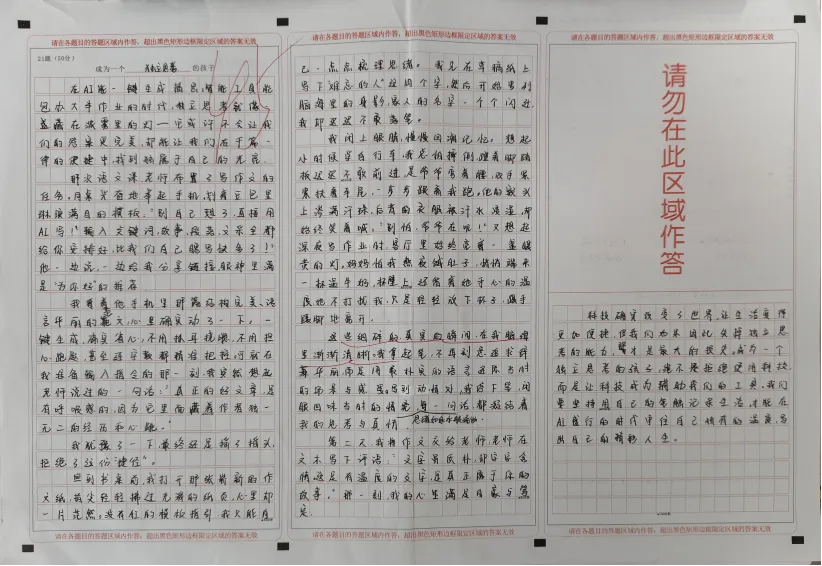 请在各题目的答题区域内作答，超出黑色矩形边框限定区域的答案无效
21题（50分）
成为一个 独立思考 的孩子
在AI能一键生成摘要，智能工具能
包办大半作业的时代，独立思考就像
盏藏在迷雾里的灯——它或许不会让我
们的答案更完美，却能让我们在千篇一
律的便捷中，找到独属于自己的光亮。
那次语文课老师布置了写作文的
任务，同桌兴奋地拿起手机，划着豆包里
琳琅满目的模板，"别自己想了，直接用
AI写！输入关键词，故事，段落，文采全都
给你安排好，比我们自己瞎写快多了！"
他一边说，一边给我分享链接，眼神里满
是"为你好"的推荐。
我看着他手机里那篇结构完美、语
言华丽的范文，心里确实动了一下，一
键生成，确实省心，不用抓耳挠腮，不用担
心跑题，甚至连字数都精准把控。可就在
我准备输入指令的那一刻，我突然想起
老师说过的一句话："真正的好文章，是
有呼吸感的，因为它里面藏着作者独一
无二的经历和心跳。
我犹豫了一下，最终还是摇了摇头，
拒绝了这份"捷径"。
回到书桌前，我打开那张崭新的作
文纸，指尖轻轻拂过光滑的纸页，心里却
一片茫然。没有AI的模板指引，我只能自
请在各题目的答题区域内作答，超出黑色矩形边框限定区域的答案无效
请在各题目的答题区域内作答，超出黑色矩形边框限定区域的答案无效
己一点点梳理思绪。我先在草稿纸上
写下"难忘的人"这四个字，然后开始写到
脑海里的身影，家人的名字一个个闪过，
我却迟迟不敢落笔。
我闭上眼睛，慢慢回溯记忆。想起
小时候学自行车，我总怕摔倒，蹬着脚踏
板迟迟不敢前进，是爷爷弯着腰，双手紧
紧扶着车尾，一步步跟着我跑。他的额头
上渗满汗珠，后背的衣服被汗水浸湿，却
始终笑着喊："别怕，爷爷在呢！"又想起
深夜写作业时，客厅里始终亮着一盏暖
黄的灯，妈妈怕我熬夜饿肚子，悄悄端来
一杯温牛奶，杯壁上还留着她手心的温
度，她不打扰我，只是轻轻放下杯子，蹑手
蹑脚地离开。
这些细碎的真实的瞬间，在我脑海
里渐渐清晰。我拿起笔，不再刻意追求辞
藻华丽，而是用最朴实的语言还原当时
的场景与感受。写到动情处，我停下笔，闭
眼回味当时的情绪，每一句话，都凝结着
我的思考与真情。
第二天，我将作文交给老师，老师在
文末写下评语："文字虽质朴，却字字含
情，这是有温度的文字，是真正属于你的
故事。"那一刻，我的心里满是自豪与笃
定。
请在各题目的答题区域内作答，超出黑色矩形边框限定区域的答案无效
请在各题目的答题区域内作答，超出黑色矩形边框限定区域的答案无效
请勿在此区域作答
科技确实改变了世界，让生活变得
更加便捷，但我们如果因此失掉独立思
考的能力，那才是最大的损失。成为一个
独立思考的孩子，绝不是拒绝使用科技，
而是让科技成为辅助我们的工具。我们
要坚持用自己的笔触记录生活，才能在
AI盛行的时代中守住自己独有的温度，写
出自己的精彩人生。
请在各题目的答题区域内作答，超出黑色矩形边框限定区域的答案无效